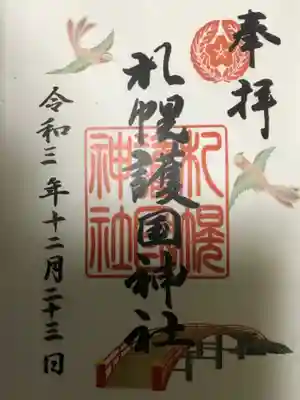 奉拝
札幌護国神社
札幌護国神社
令和三年十二月二十三日